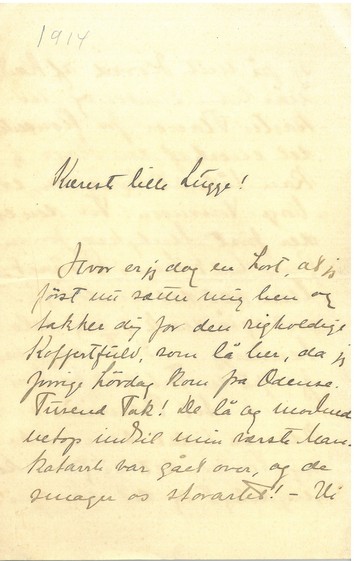 1914
Kæreste lille Lugge!
Hvor er jeg dog en Lort, at jeg
først nu sætter mig hen og
takker dig for den righoldige
Koffertfuld, som lå her, da jeg
forrige Lördag kom fra Odense.
Tusend Tak! De lå og
netop indtil min værste
katarrh var gået over, og de
smager os storartet! – Vi